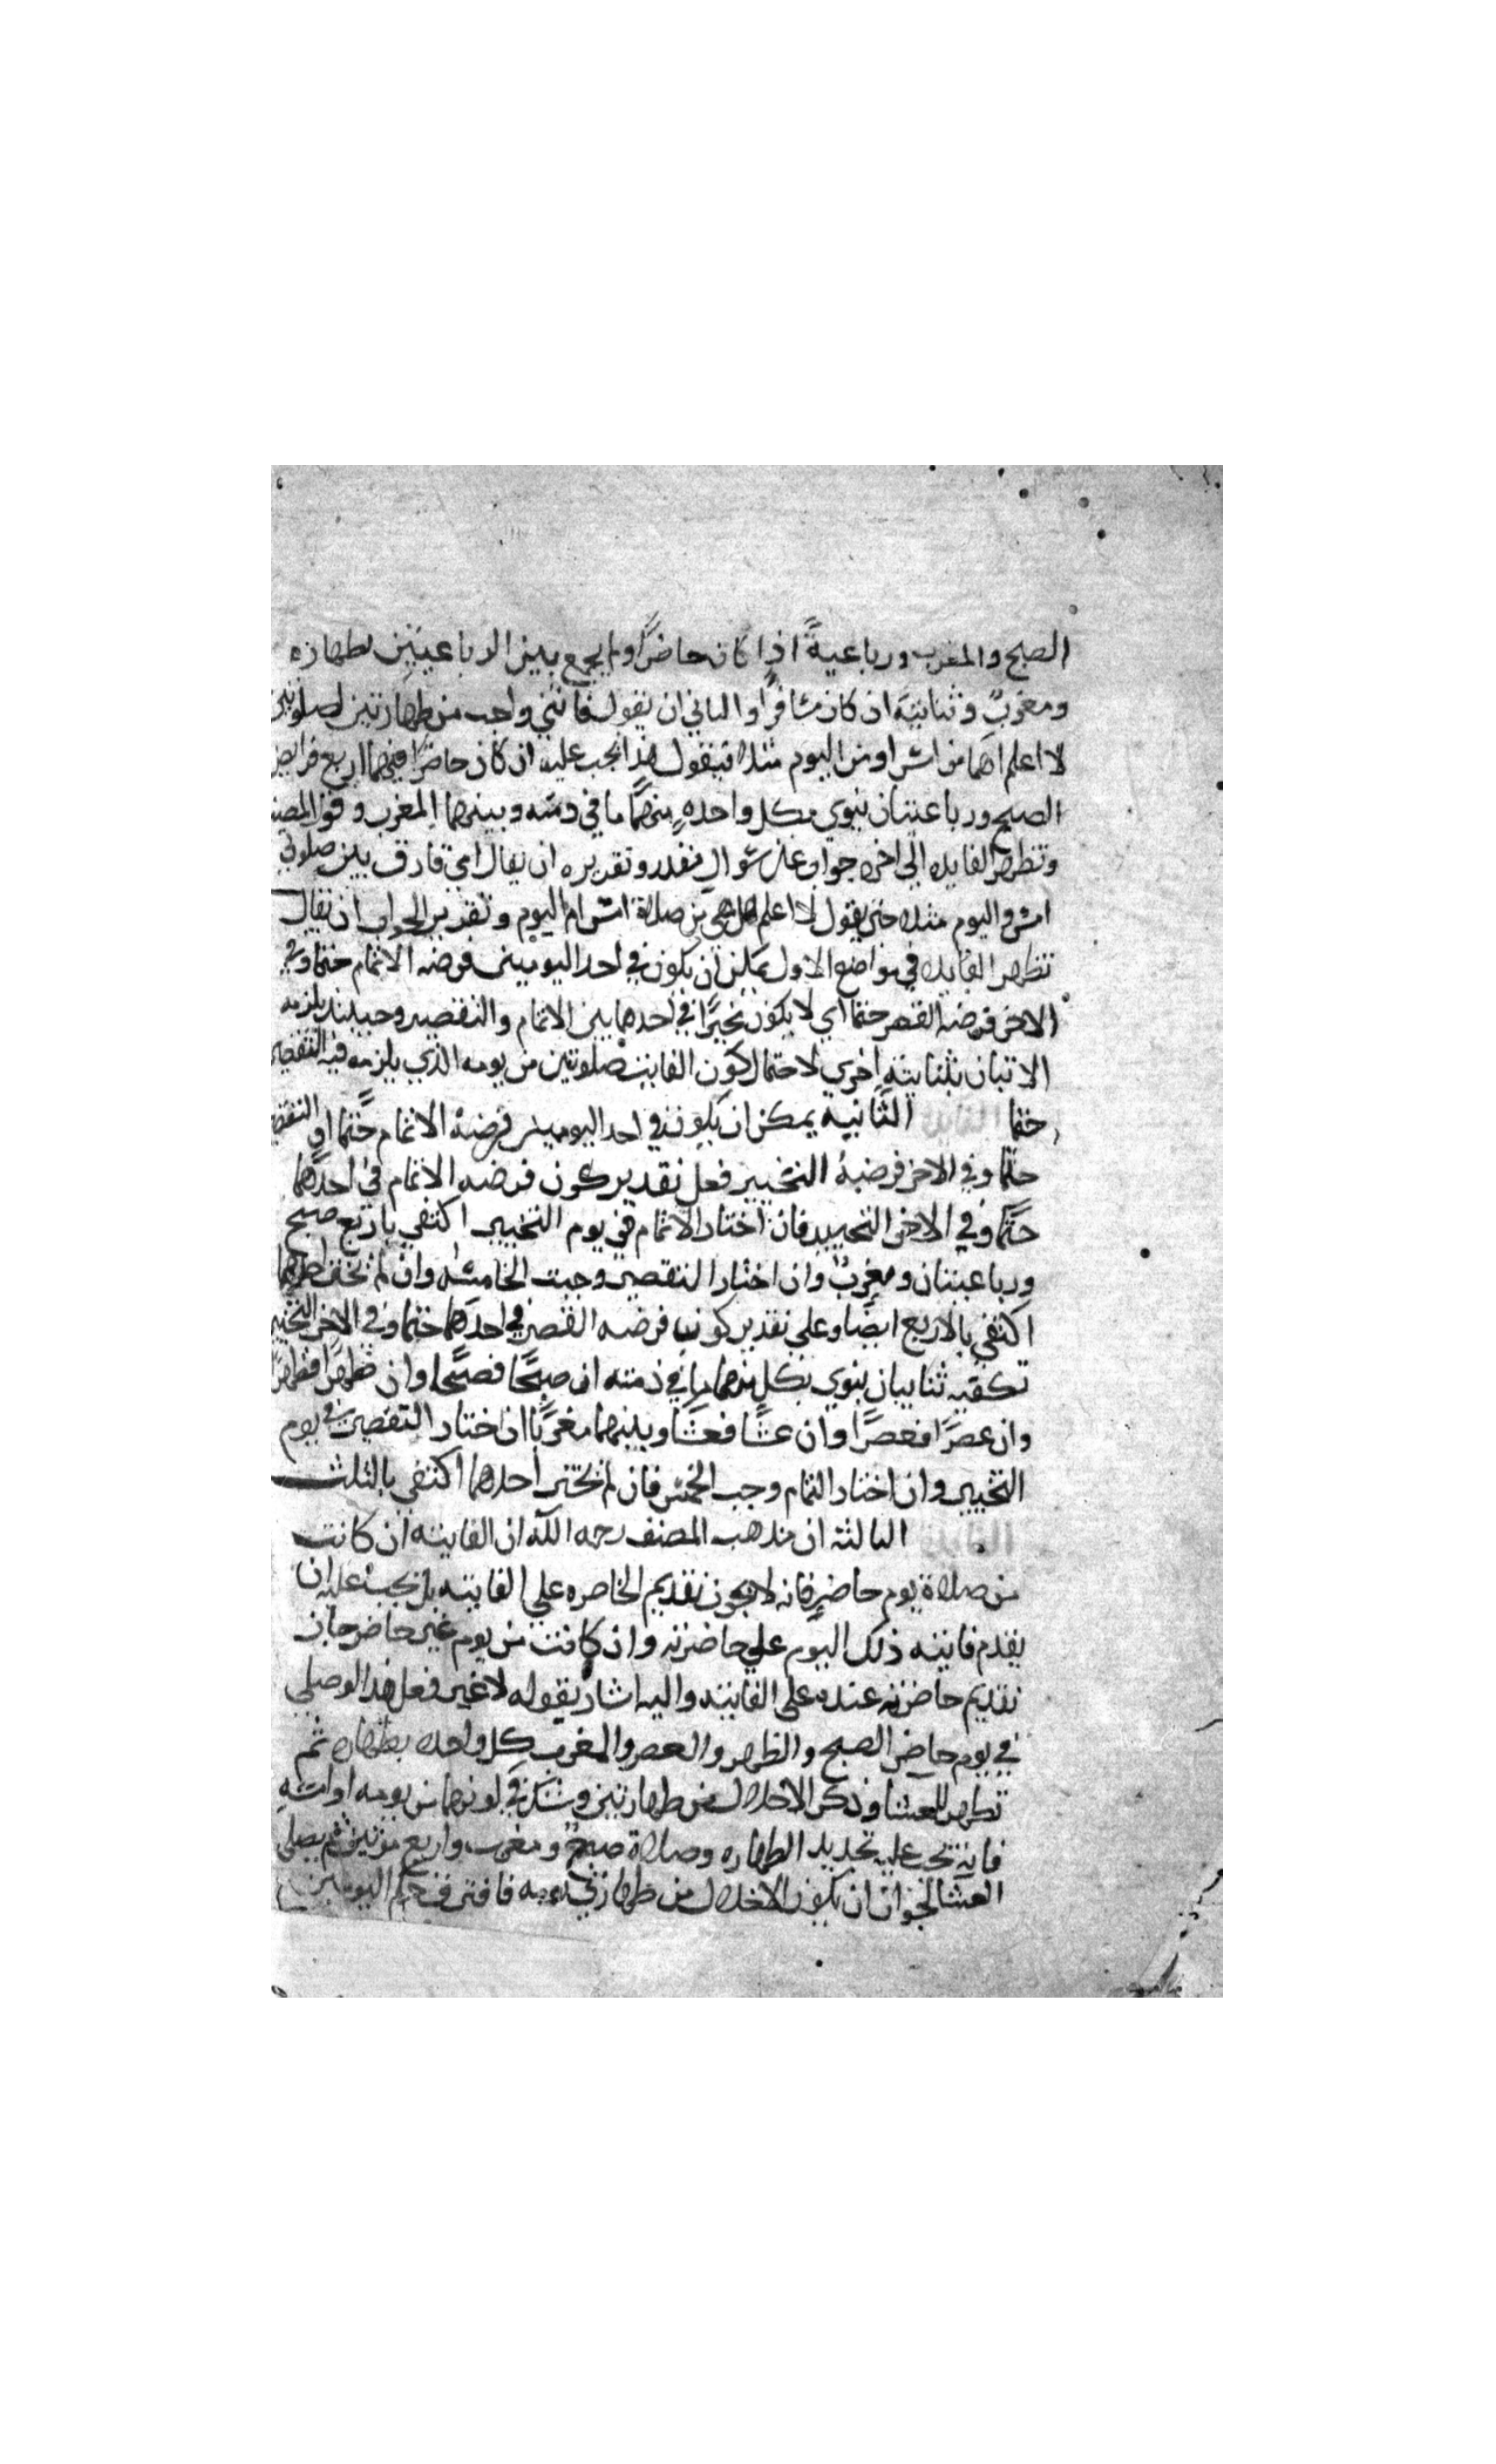 الصبح والمغرب ورباعية اذا كان حاضرا ولم يجمع بين الرباعيتين بطهارة
ومغرب وثنائية ان كان مسافرا والثاني ان يقول فاتتني واجب من طهارتين لصلوتين
لا اعلم اهما من امس او من اليوم مثلا فيقول هذا يجب عليه ان كان حاضرا فيهما اربع فرايض
الصبح ورباعيتان ينوي بكل واحدة منهما ما في ذمته وبينهما المغرب وقول المصنف
وتظهر الفايدة الى اخره جواب عن سوال مقدر وتقريره ان يقال اي فارق بين صلوتي
امس واليوم مثلا حتى يقول لا اعلم هل هي من صلاة امس ام اليوم وتقدير الجواب ان يقال
تظهر الفايدة في مواضع الاول يمكن ان يكون في احد اليومين فرضه الاتمام حتما وفي
الاخر فرضه القصر حتما اي لا يكون مخيرا في احدهما بين الاتمام والتقصير وحينئذ يلزمه
الاتيان بثنائية اخرى لاحتمال كون الفايت صلوتين من يومه الذي يلزمه فيه التقصير
حتما الثانية يمكن ان يكون في احد اليومين فرضه الاتمام حتما او التقصير
حتما وفي الاخر فرضية التخيير فعلى تقدير كون فرضه الاتمام في احدهما
حتما وفي الاخر التخيير فان اختار الاتمام في يوم التخيير اكتفى باربع صبح
ورباعيتان ومغرب وان اختار التقصير وجبت الخامسة وان لم يختر احدهما
اكتفى بالاربع ايضا وعلى تقدير كون فرضه القصر في احدهما حتما وفي الاخر التخيير
تكفيه ثنائيتان ينوي بكل منهما ما في ذمته ان صبحا فصبحا وان ظهرا فظهرا
وان عصرا فعصرا وان عشا فعشا وبينهما مغربا ان اختار التقصير في يوم
التخيير وان اختار التمام وجب الخمس فان لم يختر احدهما اكتفى بالثلث
الثالثة ان مذهب المصنف رحمه الله ان الفايتة ان كانت
من صلاة يوم حاضر فانه لا يجوز تقديم الحاضره على الفايته بل يجب عليه ان
يقدم فايتة ذلك اليوم على حاضرته وان كانت من يوم غير حاضر جاز
تقديم حاضرته عنده على الفايتة واليه اشار بقوله لا غير فعلى هذا لو صلى
في يوم حاضر الصبح والظهر والعصر والمغرب كل واحدة بطهارة ثم
تطهر للعشا وذكر الاخلال من طهارتين وشك في كونهما من يومه او امسه
فانه يجب عليه تجديد الطهاره وصلاة صبح ومغرب واربع مرتين ثم يصلي
العشا لجواز ان يكون الاخلال من طهارتي يومه فافترق حكم اليومين